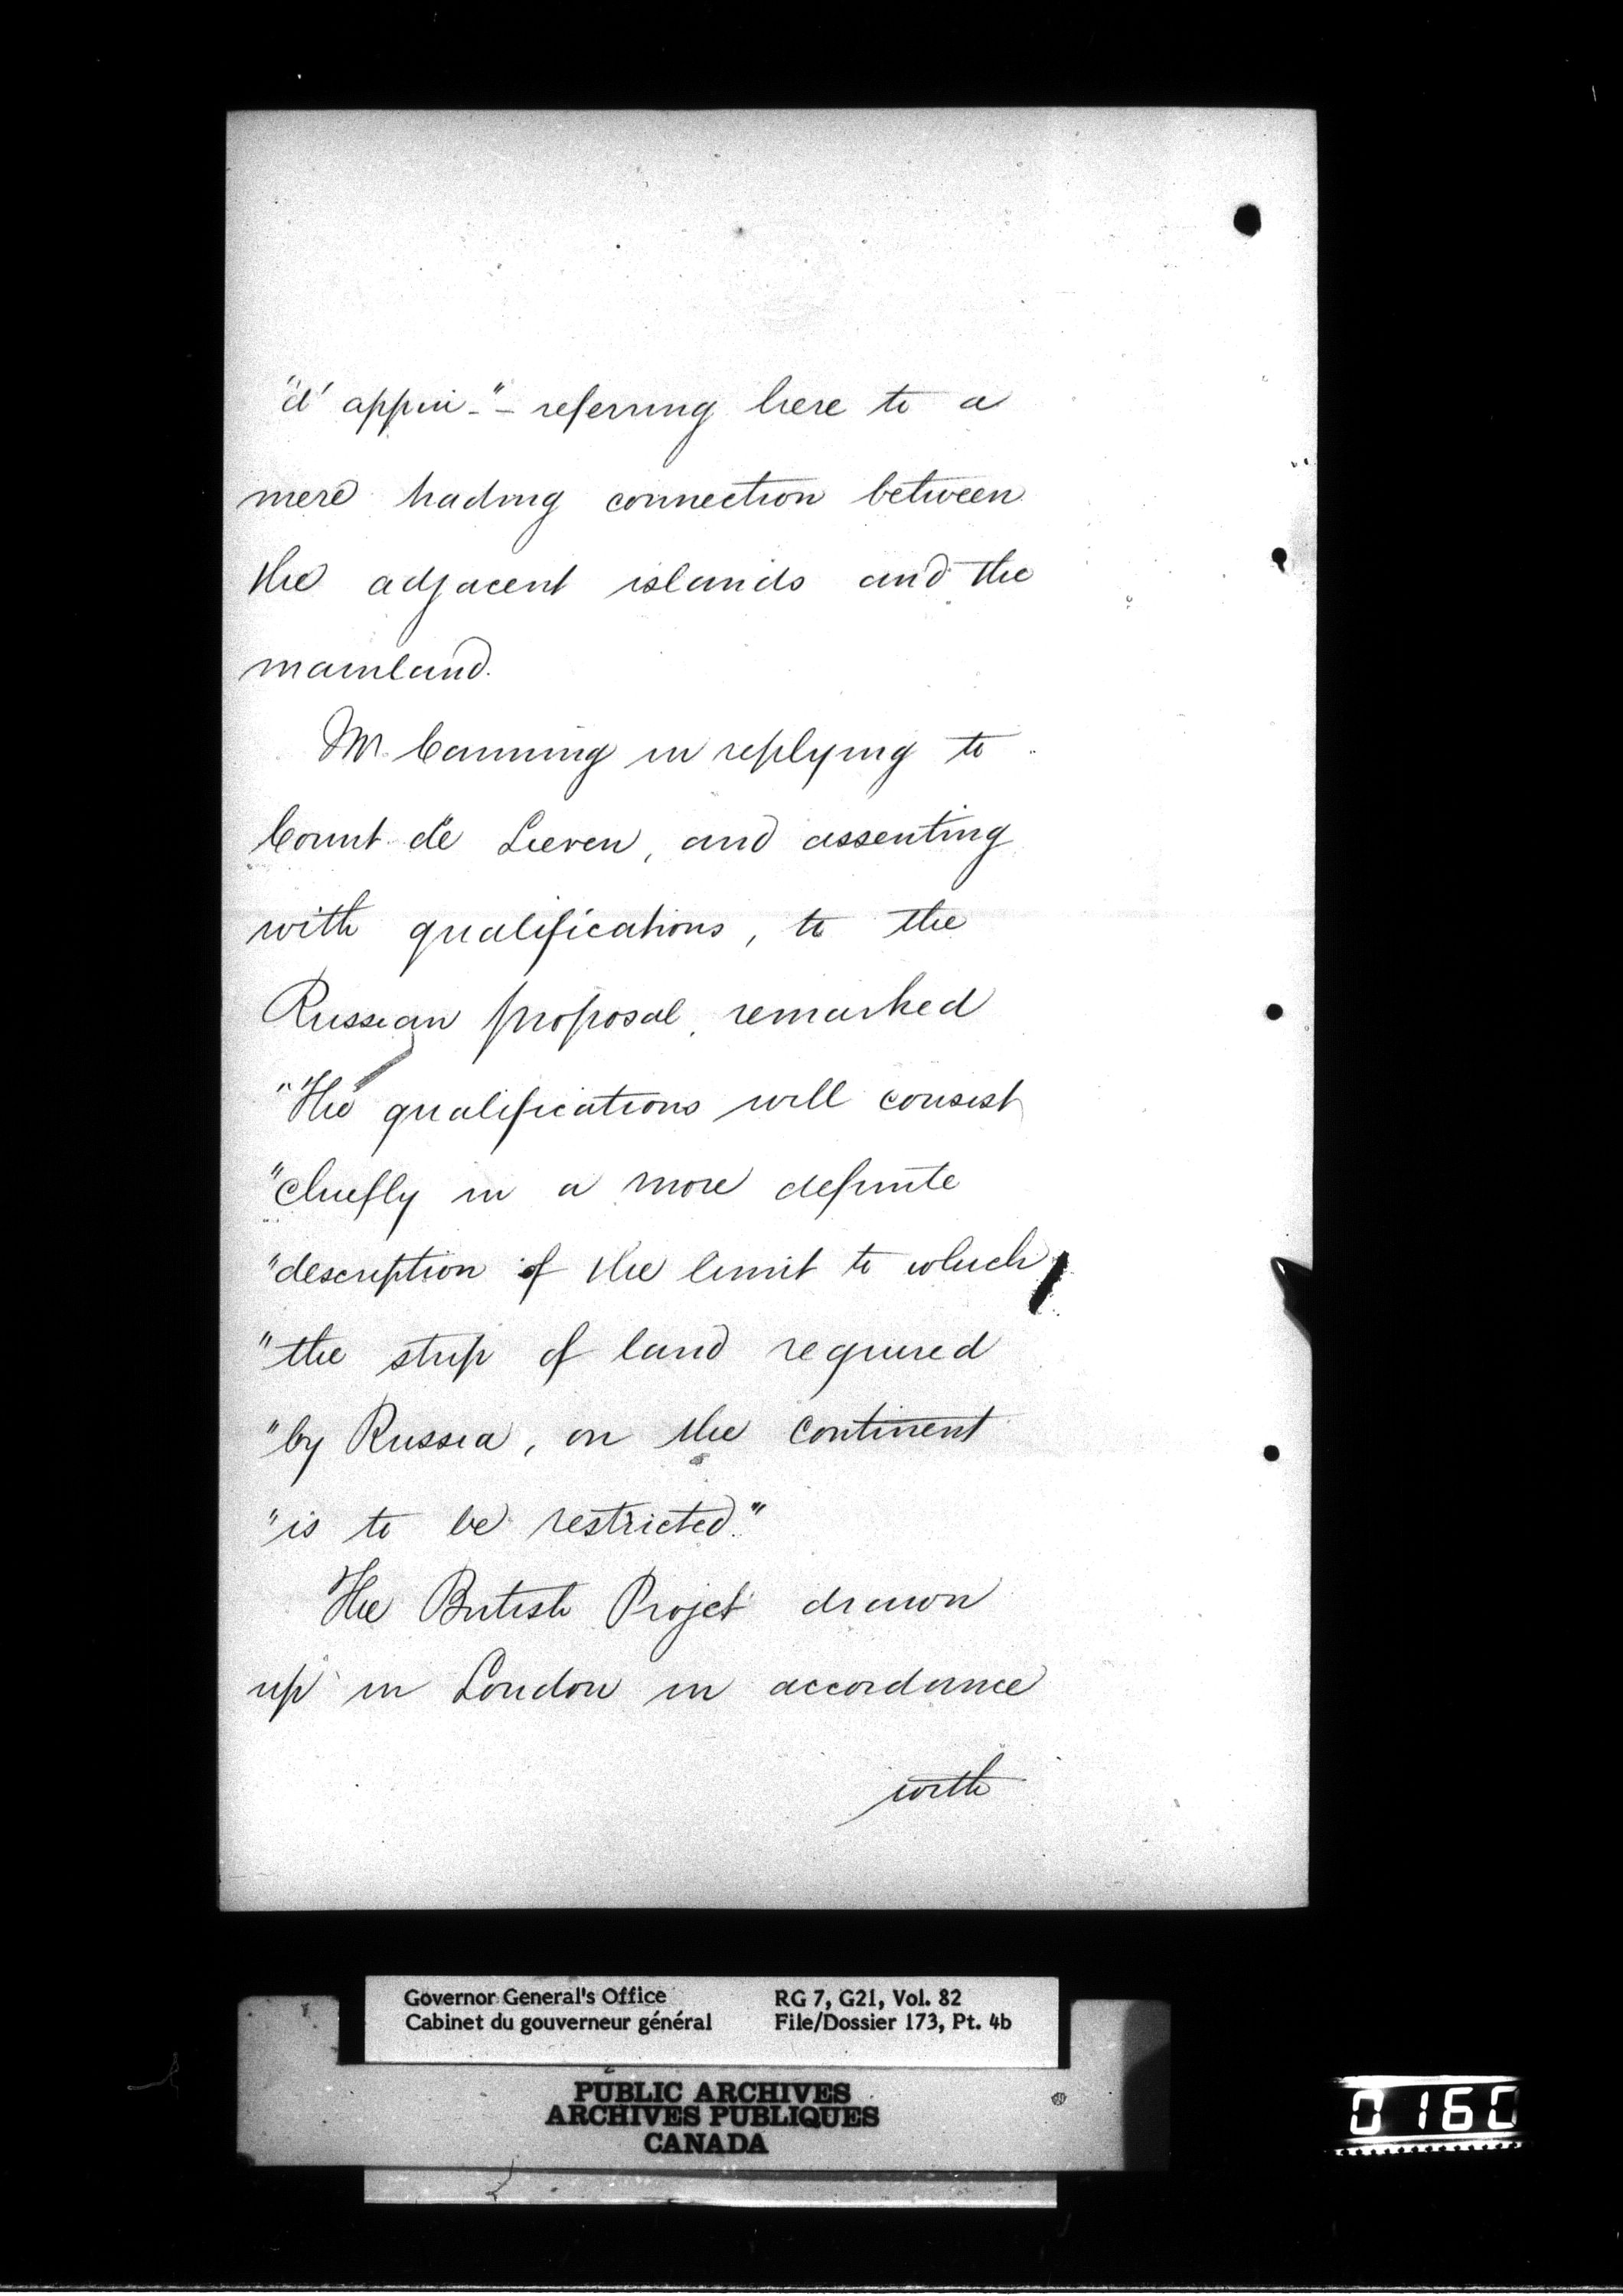 "d'appui-"- referring here to a
mere trading connection between
the adjacent islands and the
mainland.
Mr. Canning in replying to
Count de Lieven, and assenting
with qualifications, to the
Russian proposal, remarked
"The qualifications will consist
"chiefly in a more definite
"description of the limit to which
"the strip of land required
"by Russia, on the continent
"is to be restricted."
The British Projet drawn
up in London in accordance
with
Governor General's Office RG 7, G21, Vol. 82
Cabinet du gouverneur général File/Dossier 173, Pt. 4b
PUBLIC ARCHIVES
ARCHIVES PUBLIQUES
CANADA
0160